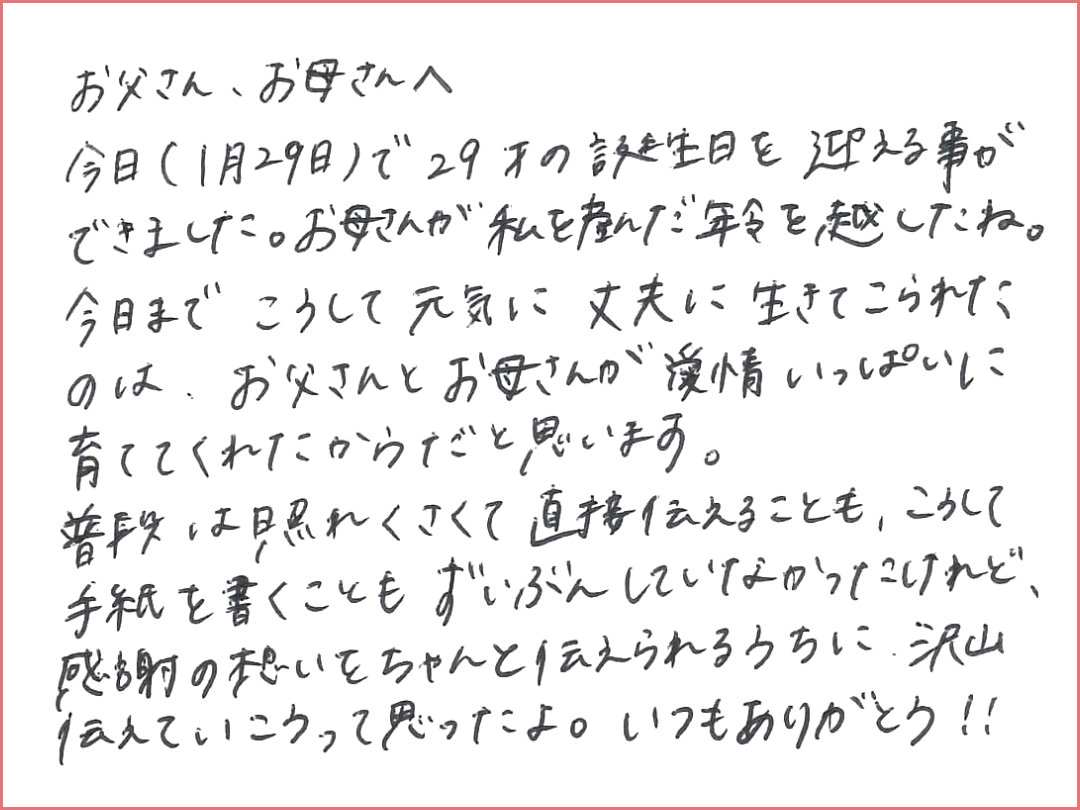 お父さん、お母さんへ
今日(1月29日)で29才の誕生日を迎える事が
できました。お母さんが私を産んだ年令を越したね。
今日までこうして元気に丈夫に生きてこられた
のは、お父さんとお母さんが愛情いっぱいに
育ててくれたからだと思います。
普段は照れくさくて直接伝えることも、こうして
手紙を書くこともずいぶんしていなかったけれど、
感謝の想いをちゃんと伝えられるうちに、沢山
伝えていこうって思ったよ。いつもありがとう!!